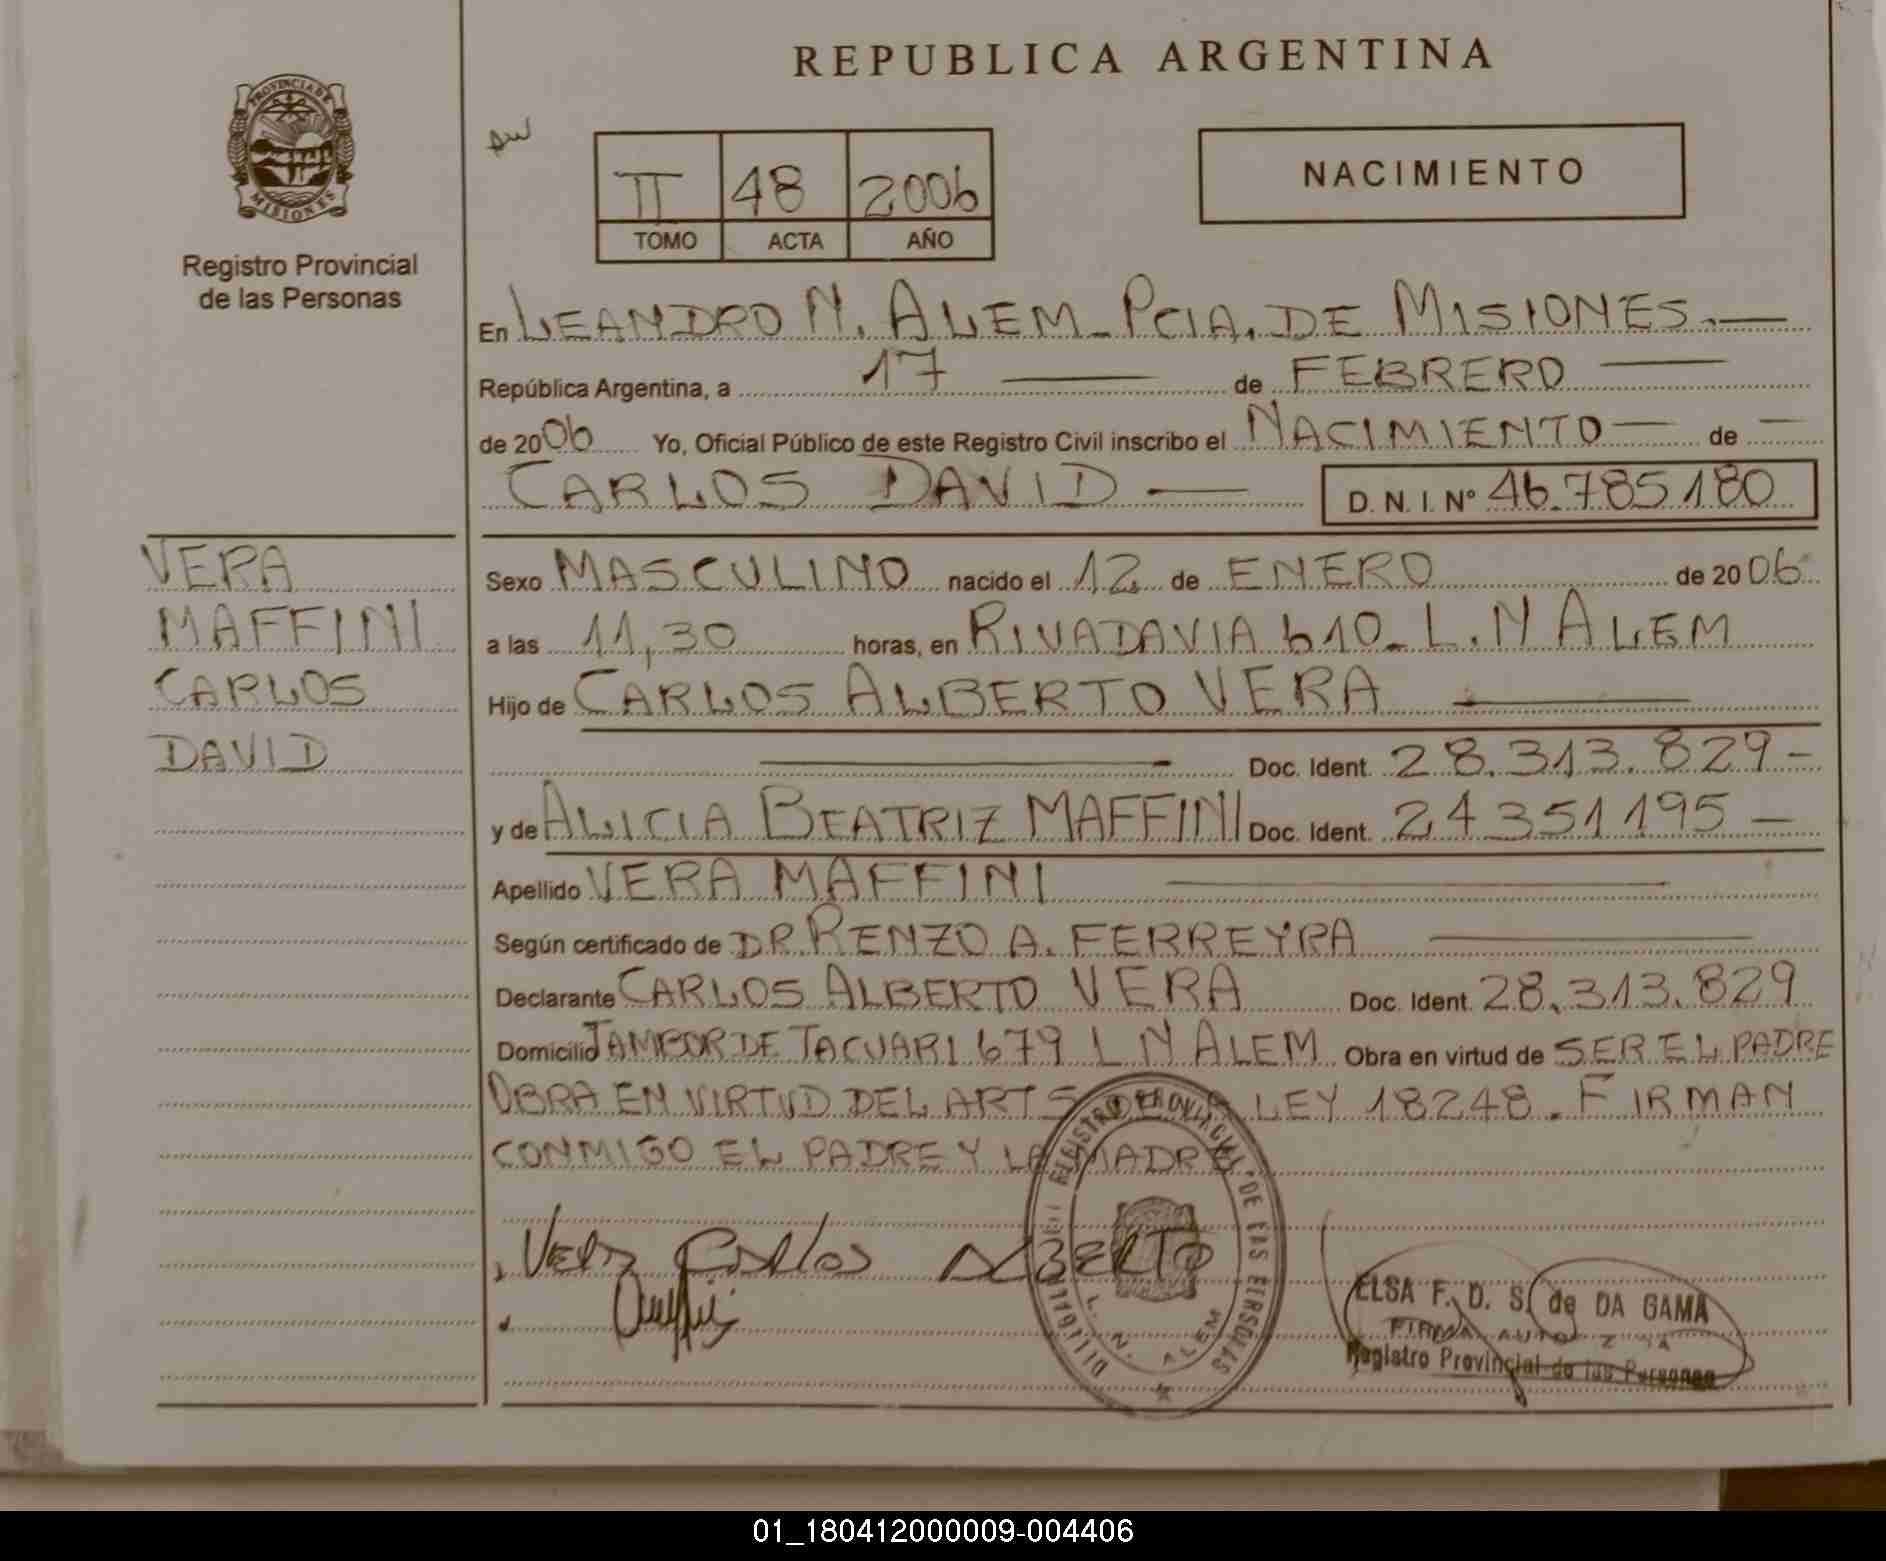 REPUBLICA ARGENTINA
PROVINCIA DE MISIONES
Registro Provincial
de las Personas
II 48 2006
TOMO ACTA AÑO
NACIMIENTO
En LEANDRO N. ALEM - PCIA. DE MISIONES.—
República Argentina, a 17 — de FEBRERO —
de 2006 Yo, Oficial Público de este Registro Civil inscribo el NACIMIENTO — de —
CARLOS DAVID — D. N. I. Nº 46.785.180
VERA
MAFFINI
CARLOS
DAVID
Sexo MASCULINO nacido el 12 de ENERO de 2006
a las 11,30 horas, en RIVADAVIA 610 - L. N ALEM
Hijo de CARLOS ALBERTO VERA —
— Doc. Ident. 28.313.829 -
y de ALICIA BEATRIZ MAFFINI Doc. Ident. 24351195 —
Apellido VERA MAFFINI —
Según certificado de DR. RENZO A. FERREYRA —
Declarante CARLOS ALBERTO VERA Doc. Ident. 28.313.829
Domicilio TAMBOR DE TACUARI 679 L N ALEM Obra en virtud de SER EL PADRE
OBRA EN VIRTUD DEL ART 5 LEY 18248. FIRMAN
CONMIGO EL PADRE Y LA MADRE
Vera Carlos Alberto
REGISTRO PROVINCIAL DE LAS PERSONAS
L. N. ALEM
ELSA F. D. S. de DA GAMA
FIRMA AUTORIZADA
Registro Provincial de las Personas
01_180412000009-004406